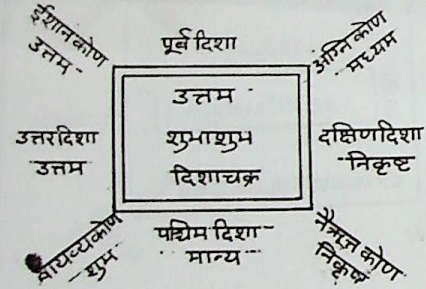 ईशानकोण
उत्तम
पूर्व दिशा
अग्नि कोण
मध्यम
उत्तरदिशा
उत्तम
उत्तम
शुभाशुभ
दिशाचक्र
दक्षिणदिशा
निकृष्ट
वायव्यकोण
शुभ
पश्चिम दिशा
मान्य
नैऋत्य कोण
निकृष्ट